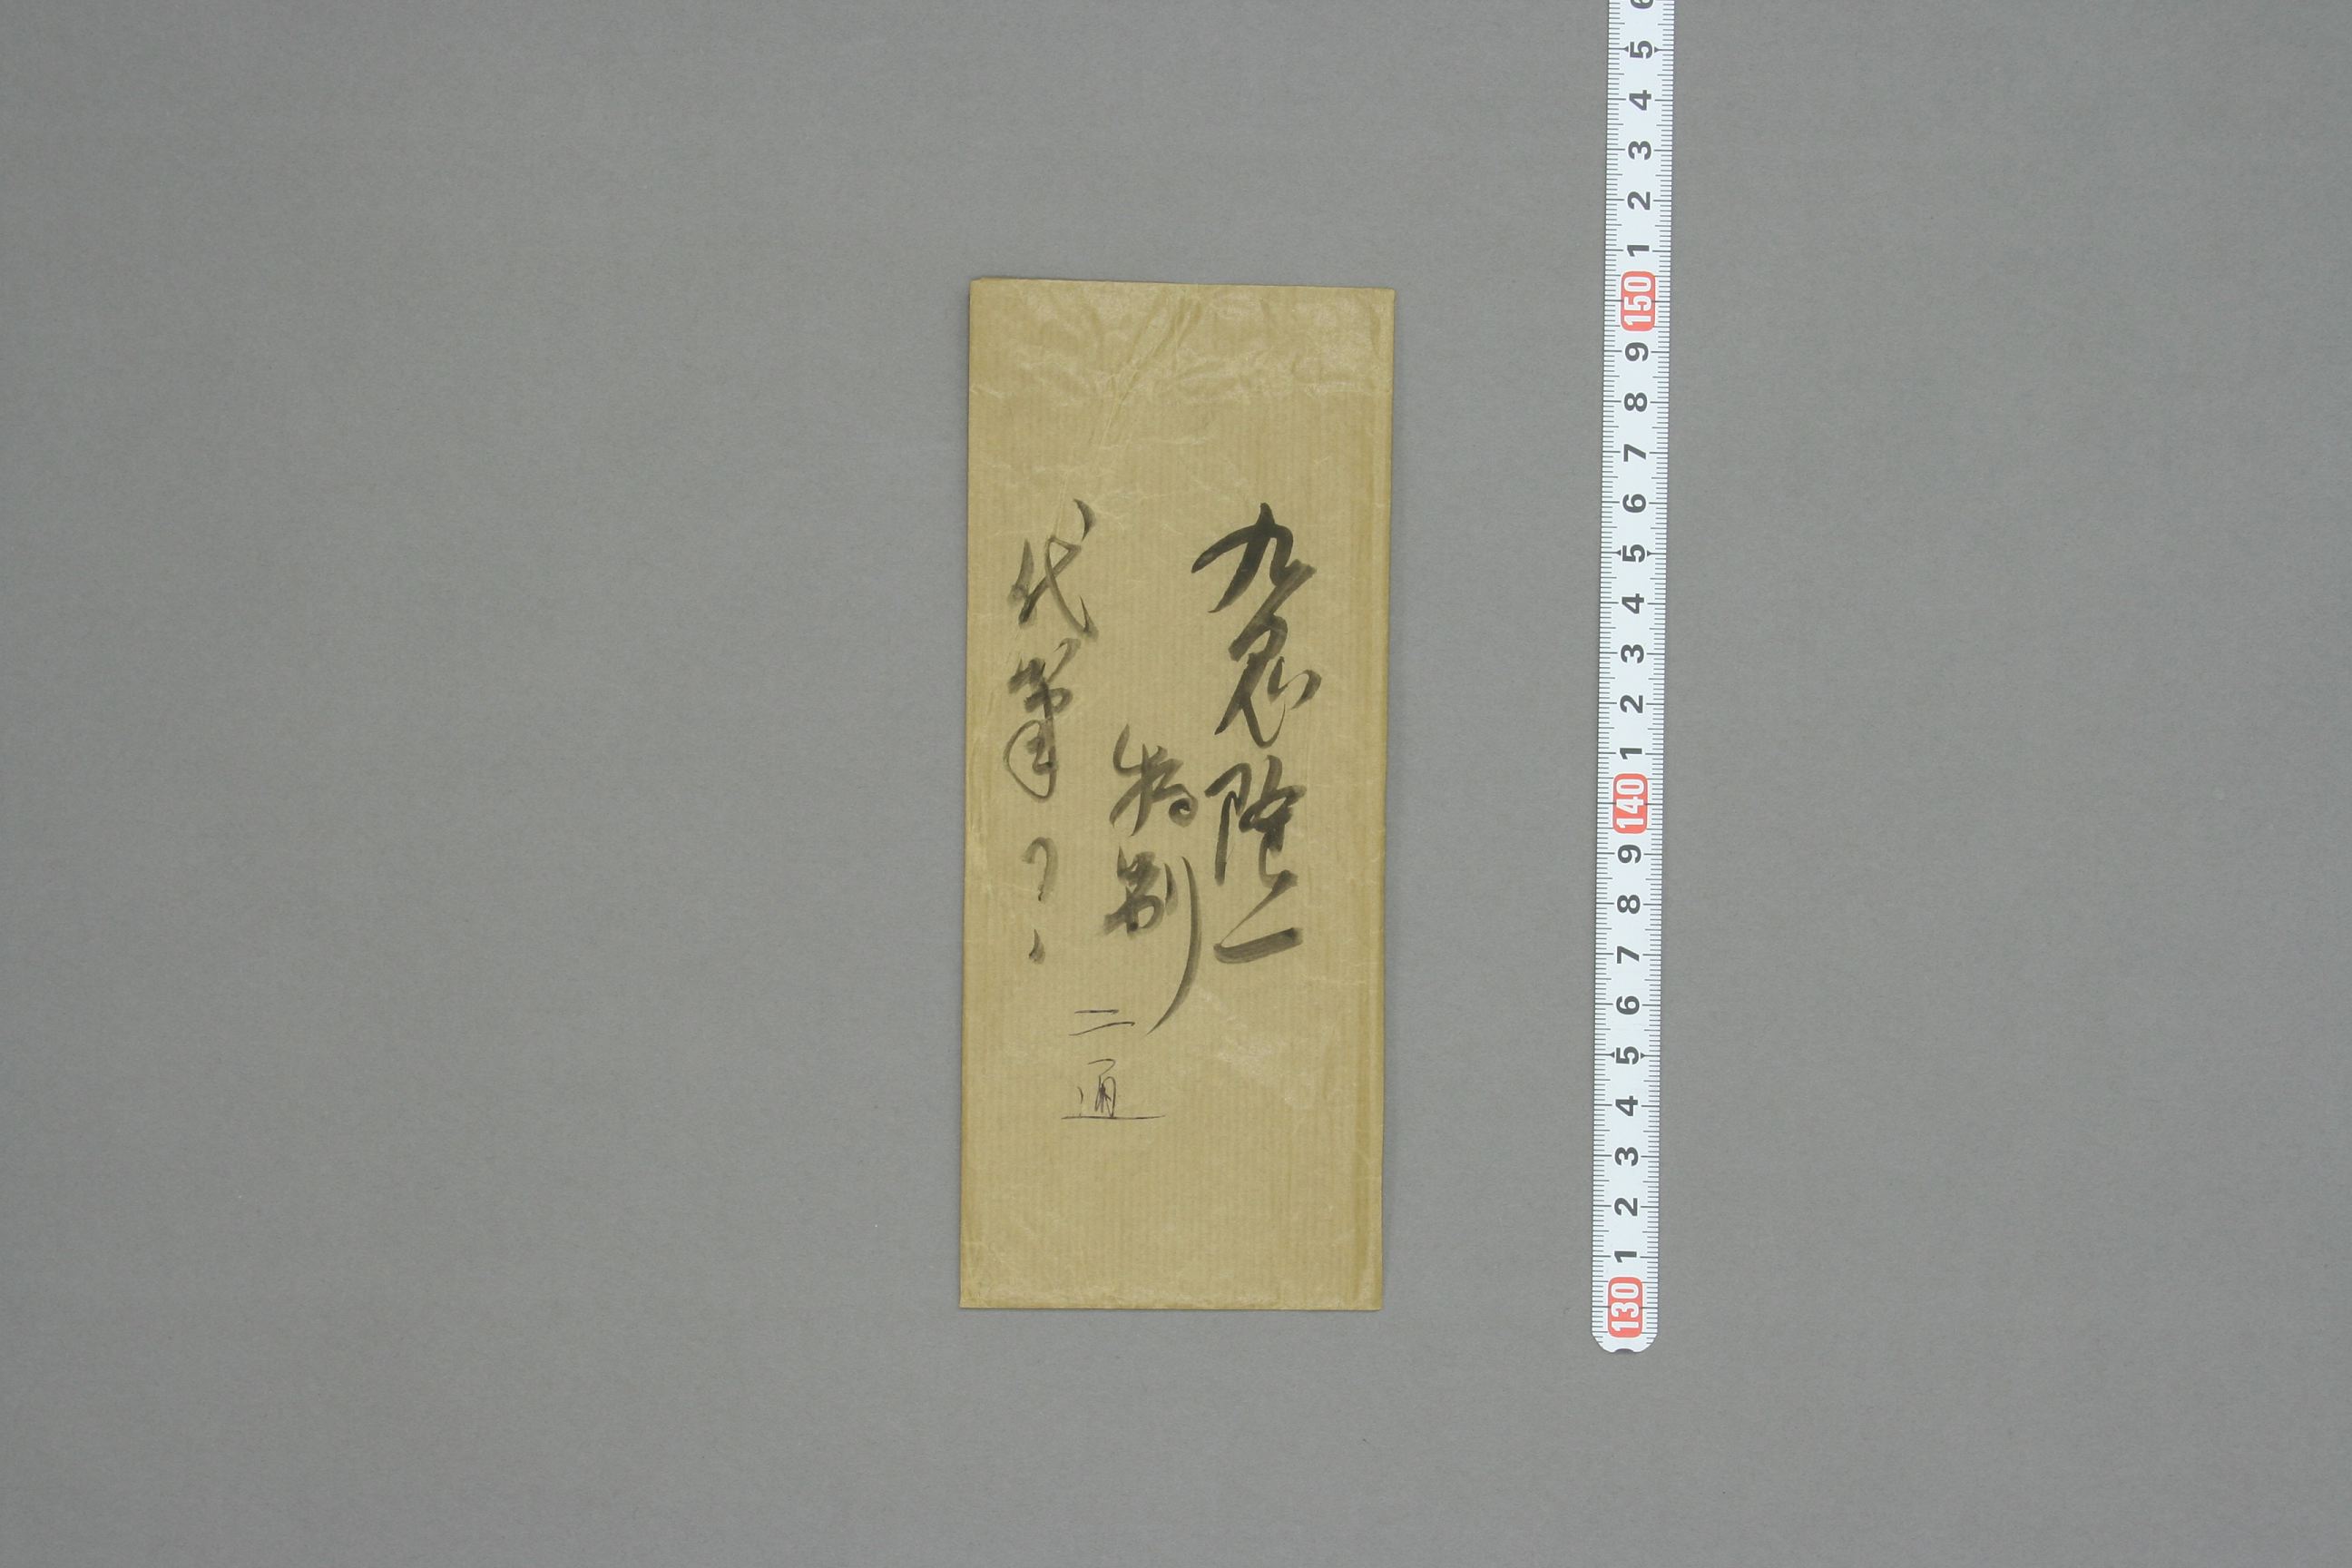 九鬼隆一
特別
代筆?
二通
6
5
4
3
2
1
150
9
8
7
6
5
4
3
2
1
140
9
8
7
6
5
4
3
2
1
130